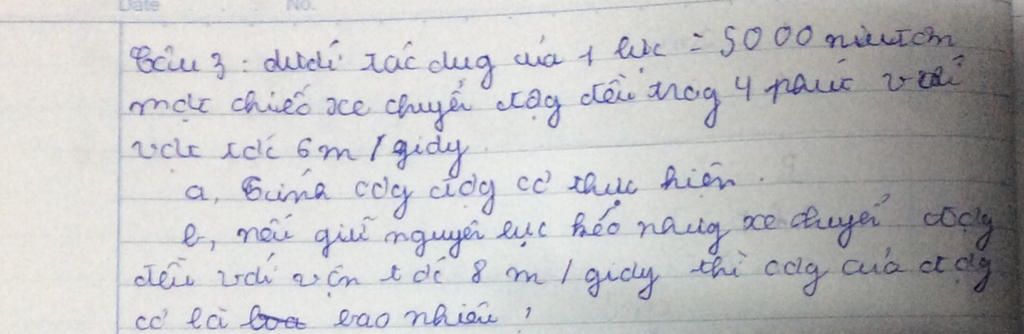 Date No.
Câu 3: dưới tác dụg của 1 lực = 5000 niutơn
một chiếc xe chuyển độg đều trog 4 phút với
vật tốc 6m / giây
a, Tính côg độg cơ thực hiện.
b, nếu giữ nguyên lực kéo nhưg xe chuyển độg
đều với vận tốc 8 m / giây thì côg của độg
cơ là bao nhiêu ?